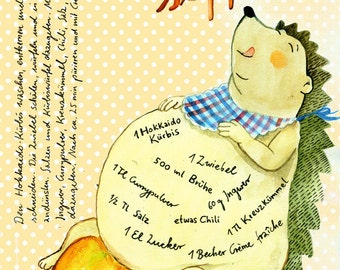 Den Hokkaido-Kürbis waschen, entkernen und
schneiden. Die Zwiebel schälen, würfeln und in
andünsten. Salzen und Kürbiswürfel dazugeben. M
Ingwer, Currypulver, Kreuzkümmel, Chili, Salz,
dazugeben. Nach ca. 15 min pürieren und mit C
1 Hokkaido
Kürbis
1 Zwiebel
500 ml Brühe
60g Ingwer
1 Tl Currypulver
½ Tl Salz
etwas Chili
1 Tl Kreuzkümmel
1 El Zucker
1 Becher Crème fraîche